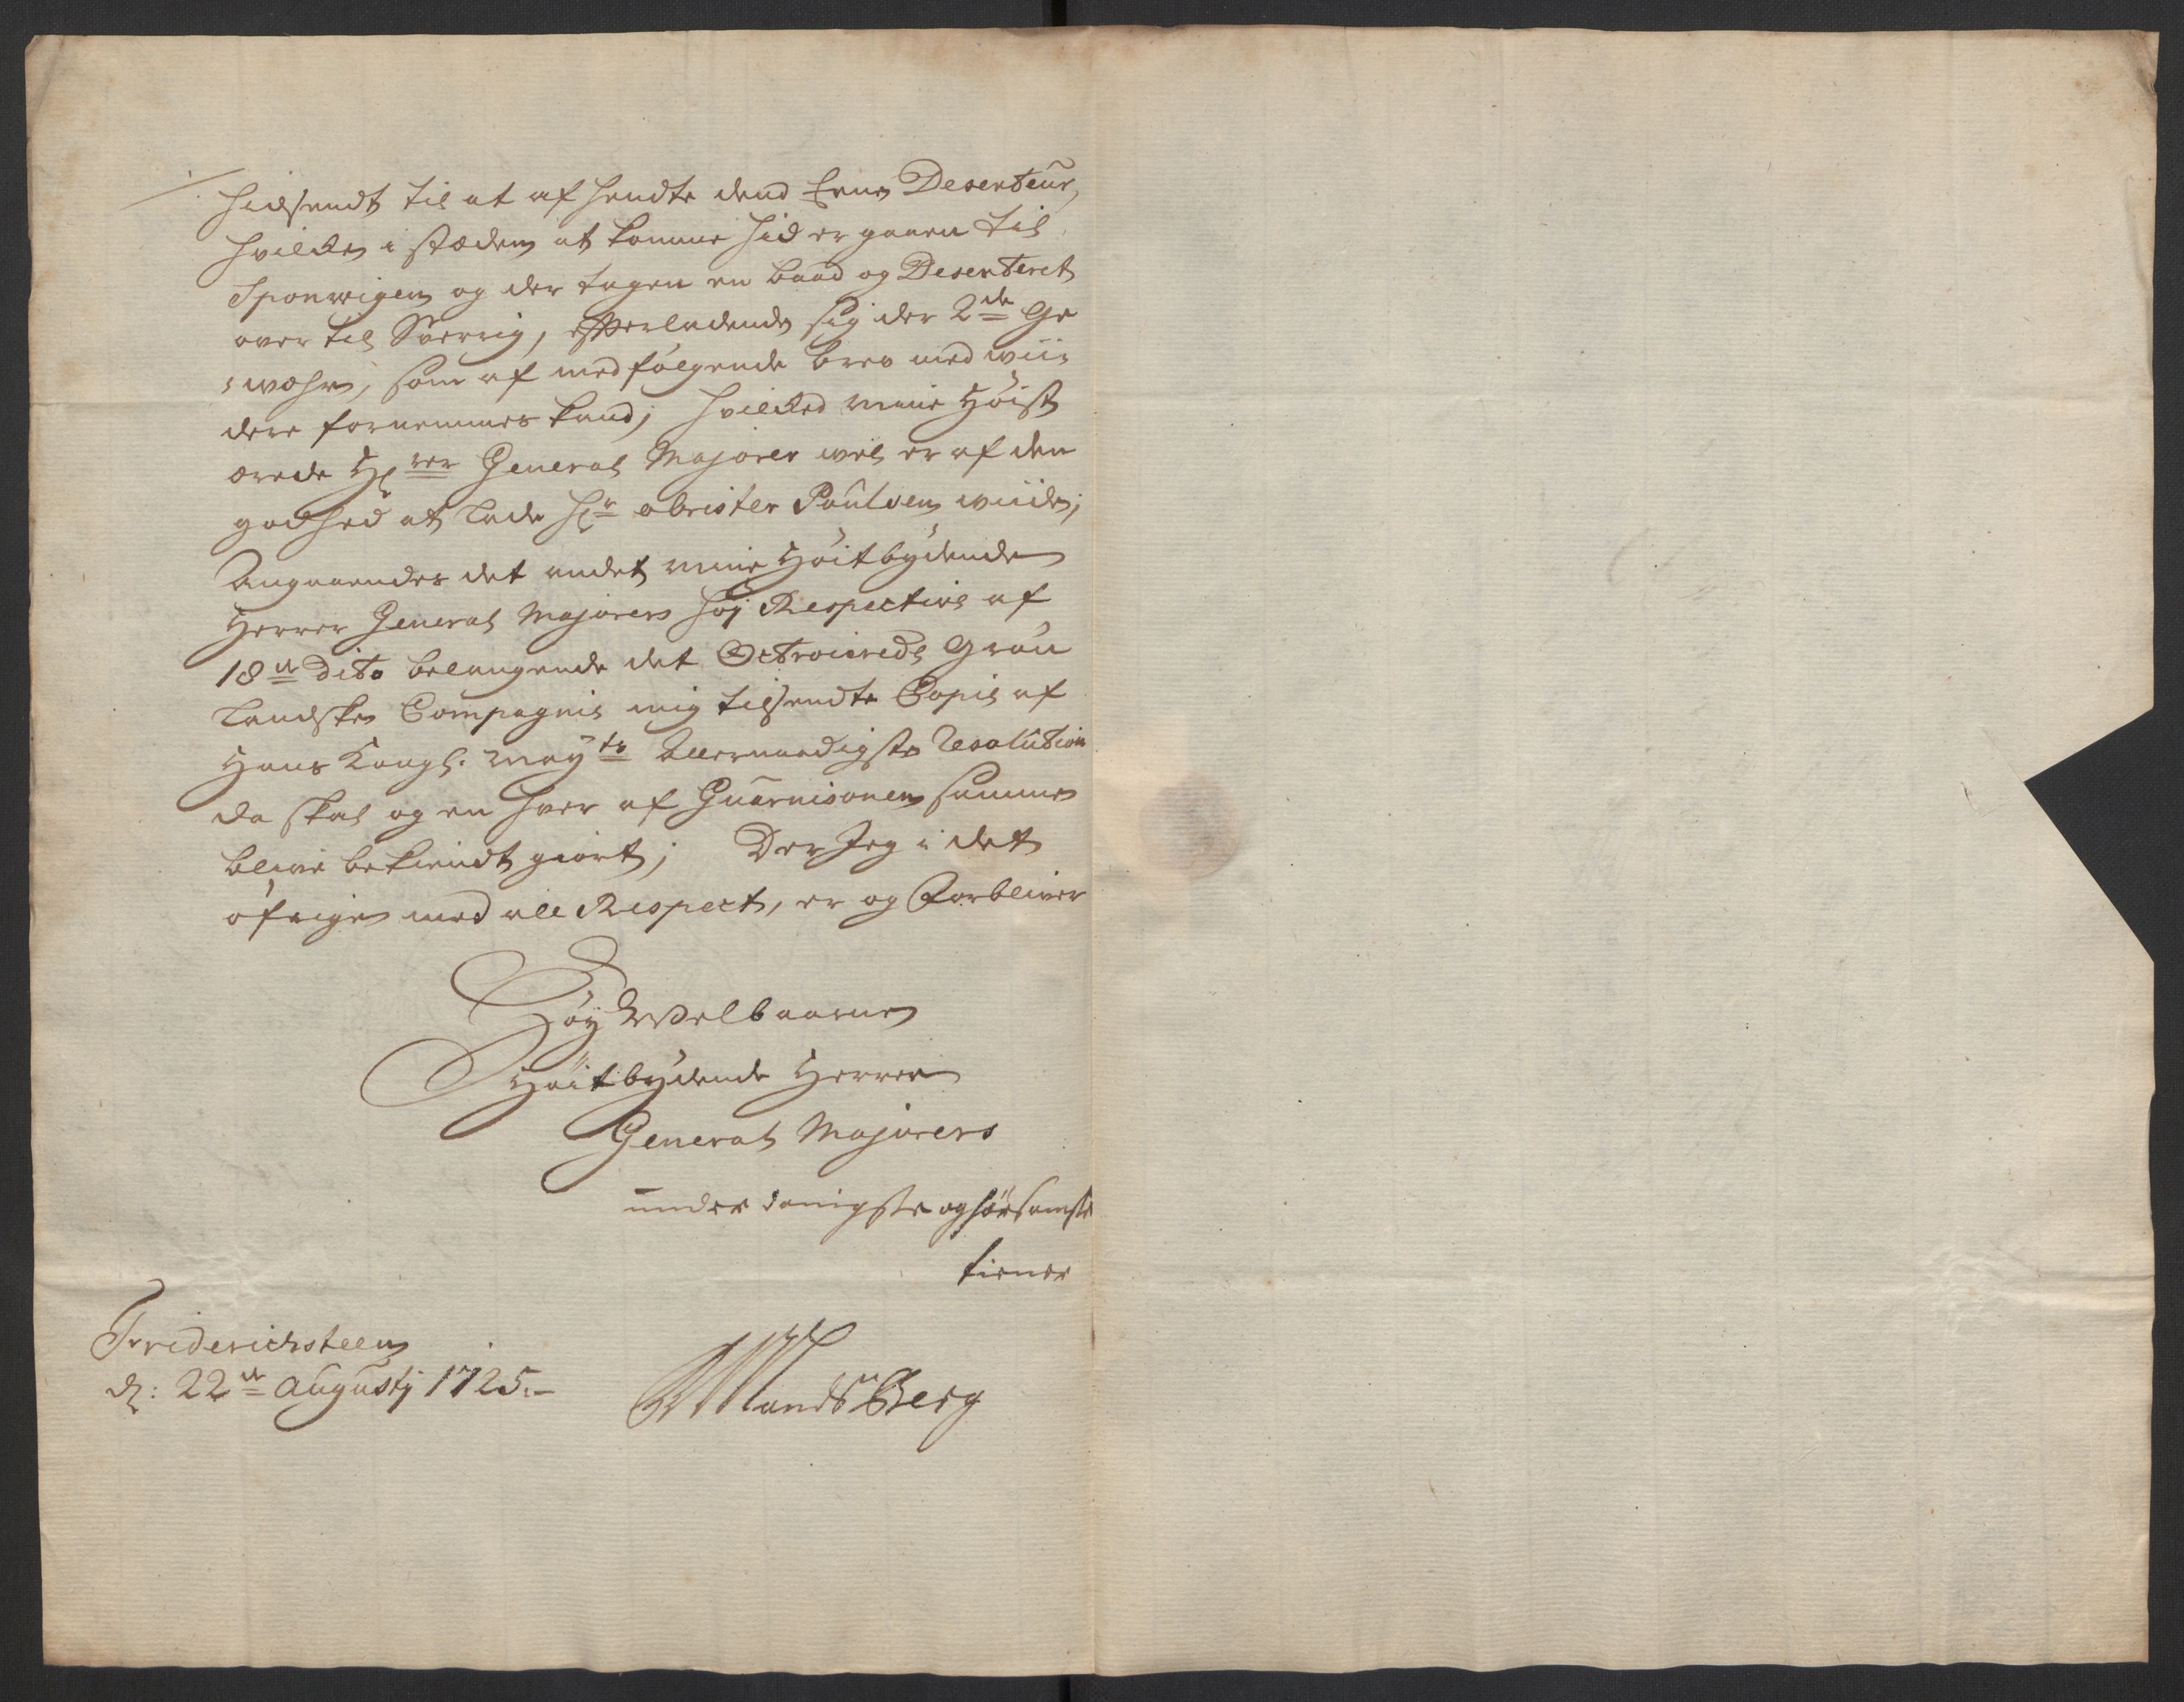 hidsendt til at afhendte dend Eene Deserteur,
hvilcke i stæden at komme hid er gaaen til
Sponwigen og der tagen en baad og Deserteret
over til Sverrig, efterladende sig der 2de Ge
wehr, som af medfølgende brev med wii
dere fornemmes kand; hvilcked mine Høist
ærede Hrr General Majorer wel er af den
godhed at lade Hr obrister Poulsen wiide;
Angaaendes det andet mine Høitbydende
Herrer General Majorers høj Respective af
18de Dito belangende det Octroierede Grøn
landske Compagnie mig tilsendte Copie af
Hans Kongl: Mayts Allernaadigste Resolution
da skal og en hver af Guarnisonen samme
blive bekiendt giort; Der Jeg i det
øfrige med all Respect, er og Forbliver
Høy Velbaarne
Høitbydende Herrer
General Majorers
underdanigste og hørsamste
tiener
Friderichsteen
d: 22de Augustij 1725.
Landsberg